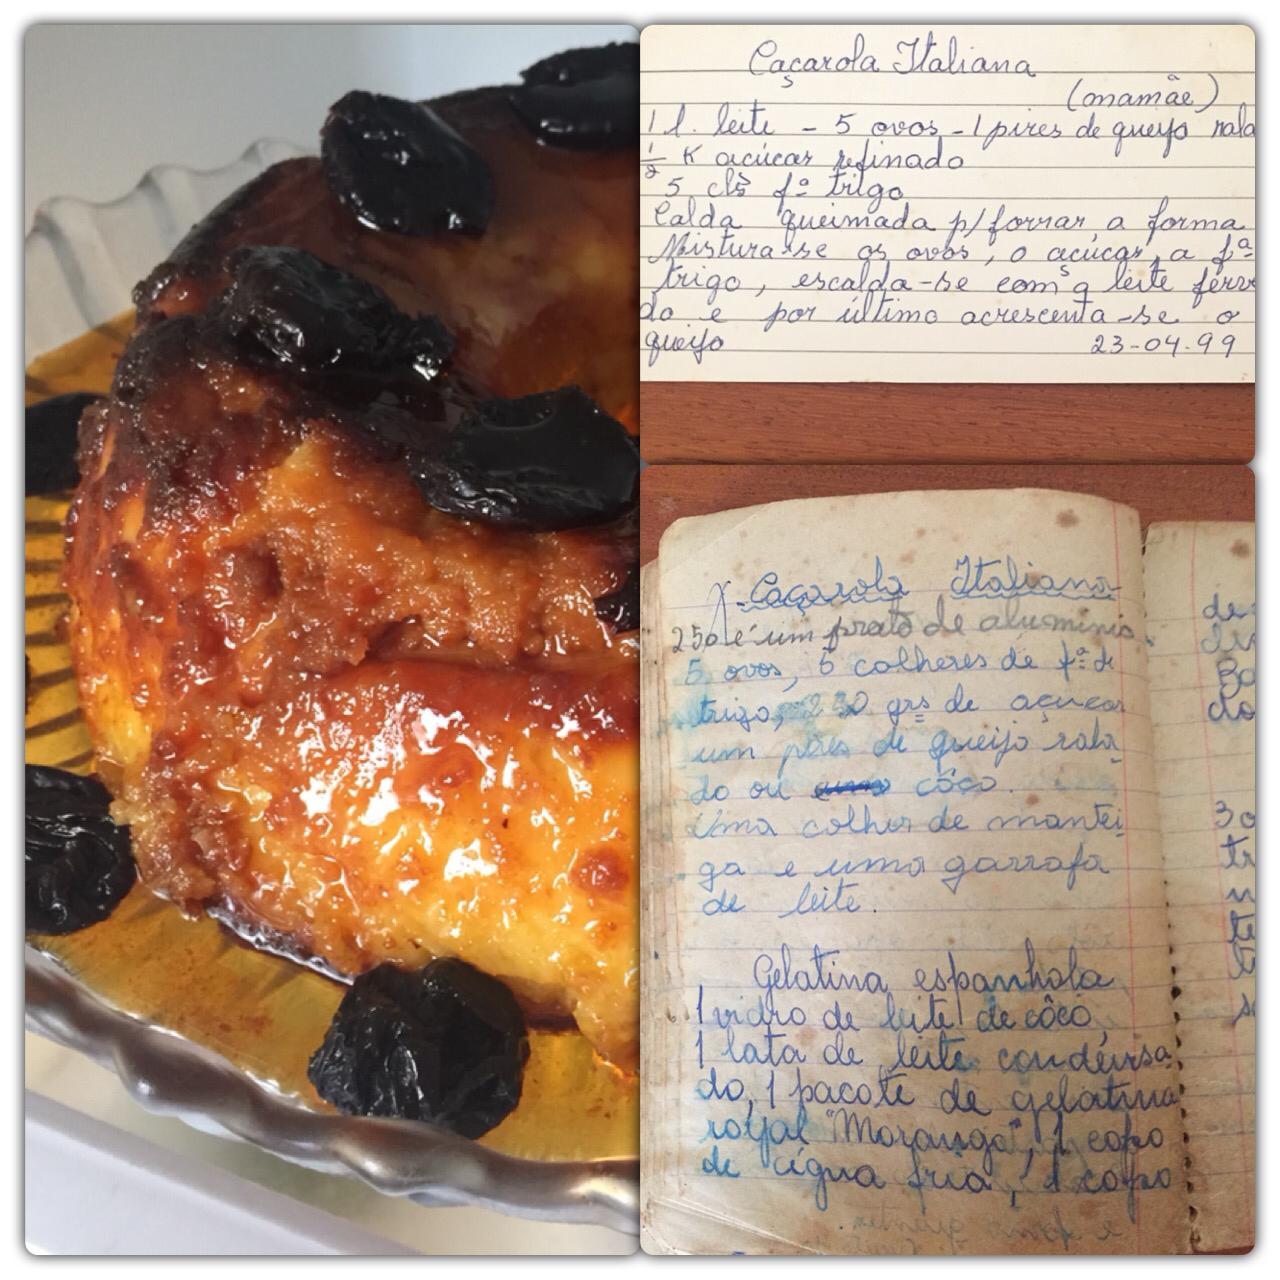 Caçarola Italiana
(mamãe)
1 l. leite - 5 ovos - 1 pires de queijo rala
1/2 K açúcar refinado
5 clˢ fª trigo
Calda queimada p/forrar a forma
Mistura-se os ovos, o açúcar, a fª
trigo, escalda-se com o leite ferv
do e por último acrescenta-se o
queijo 23-04-99
Caçarola Italiana
250 é um prato de alumínio
5 ovos, 5 colheres de fª de
trigo, 250 grs de açucar
um pires de queijo rala-
do ou côco.
Uma colher de mantei-
ga e uma garrafa
de leite.
Gelatina espanhola
1 vidro de leite de côco,
1 lata de leite condensa
do, 1 pacote de gelatina
royal "Morango", 1 copo
de água fria, 1 copo
de
Ba
3 o
tr